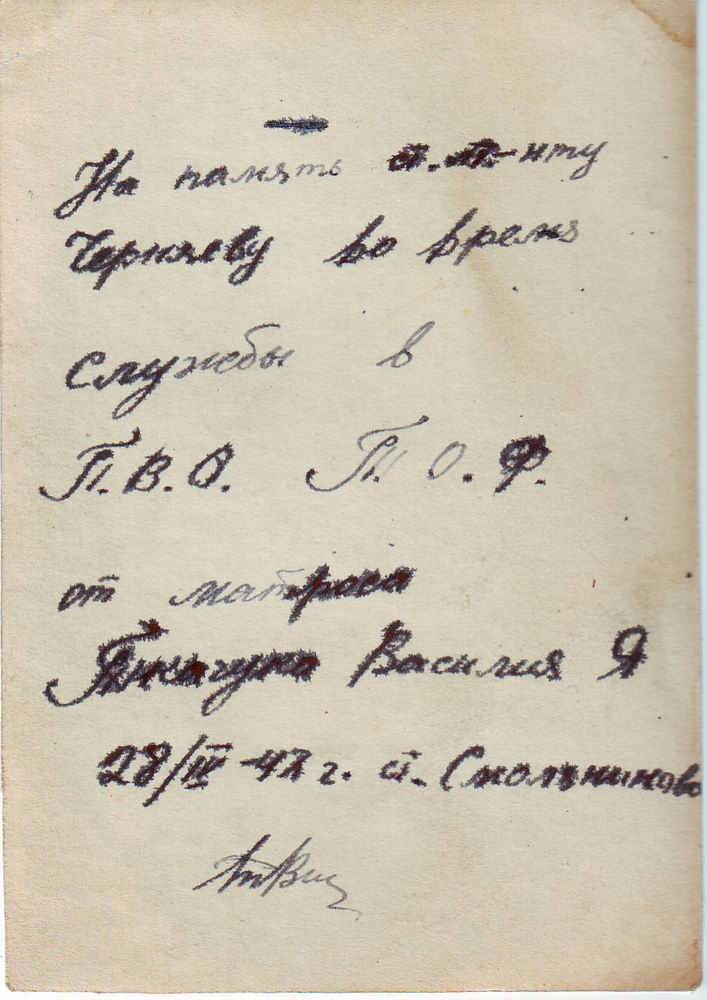 На память ст. л-нту
Черняеву во время
службы в
П.В.О. Т.О.Ф.
от матроса
Василия Я
28/IV-47 г. п. Смольниково